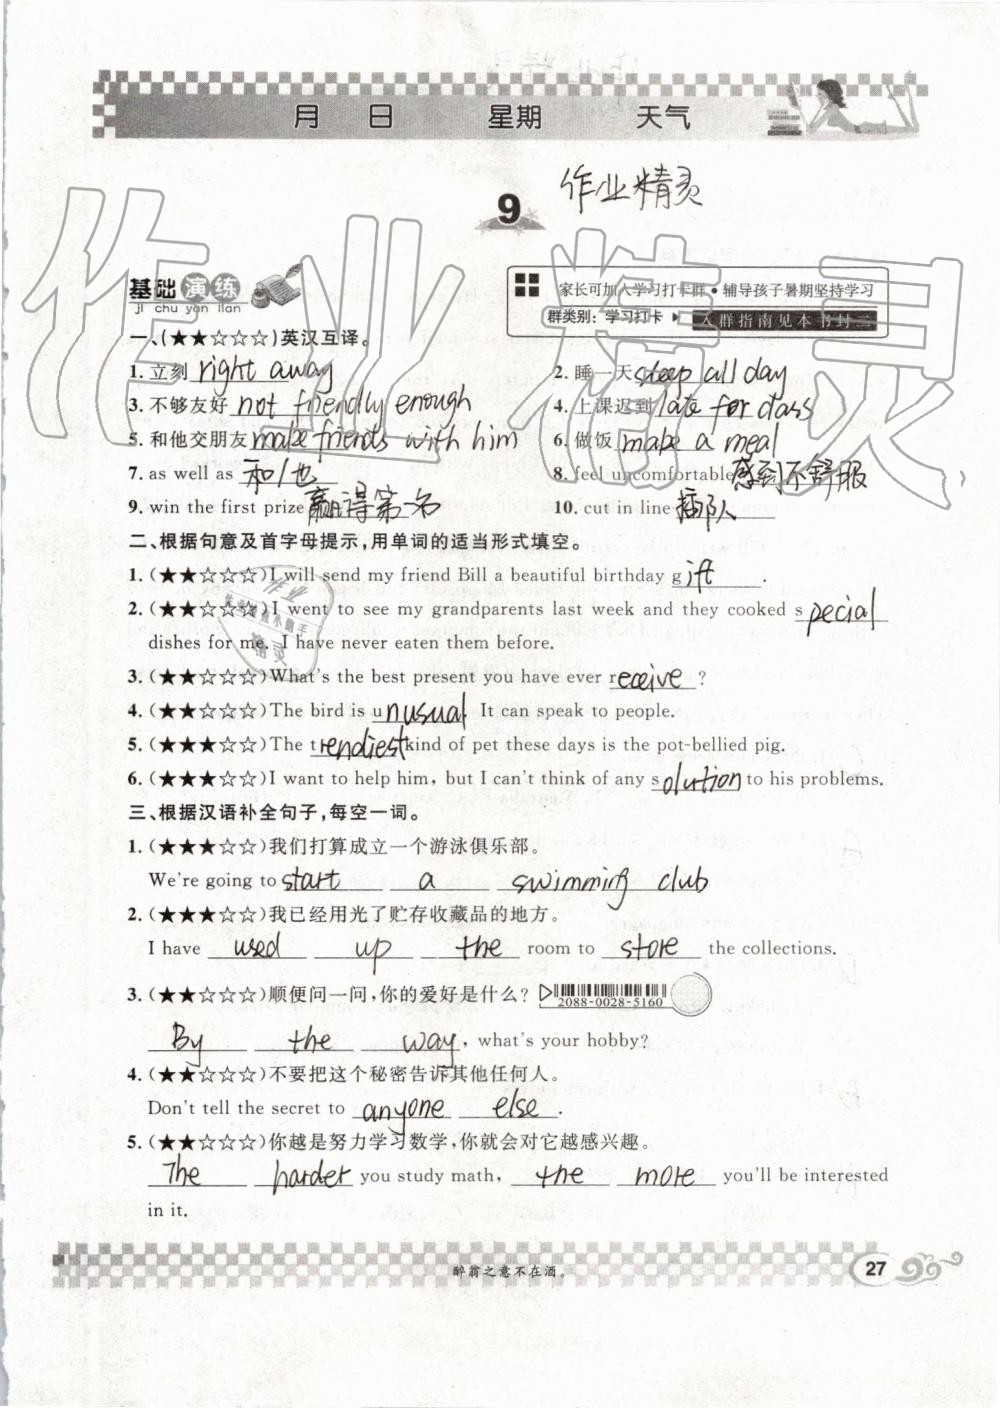 月 日 星期 天气
9 作业精灵
基础演练
jī chu yan lian
家长可加入学习打卡群·辅导孩子暑期坚持学习
群类别：学习打卡 入群指南见本书封二
一、(★★☆☆☆)英汉互译。
1. 立刻 right away 2. 睡一天 sleep all day
3. 不够友好 not friendly enough 4. 上课迟到 late for class
5. 和他交朋友 make friends with him 6. 做饭 make a meal
7. as well as 和/也 8. feel uncomfortable 感到不舒服
9. win the first prize 赢得第一名 10. cut in line 插队
二、根据句意及首字母提示，用单词的适当形式填空。
1. (★★☆☆☆)I will send my friend Bill a beautiful birthday gift.
2. (★★☆☆☆)I went to see my grandparents last week and they cooked special
dishes for me. I have never eaten them before.
3. (★★☆☆☆)What's the best present you have ever receive?
4. (★★☆☆☆)The bird is unusual. It can speak to people.
5. (★★★☆☆)The trendiest kind of pet these days is the pot-bellied pig.
6. (★★☆☆☆)I want to help him, but I can't think of any solution to his problems.
三、根据汉语补全句子，每空一词。
1. (★★★☆☆)我们打算成立一个游泳俱乐部。
We're going to start a swimming club
2. (★★★☆☆)我已经用光了贮存收藏品的地方。
I have used up the room to store the collections.
3. (★★☆☆☆)顺便问一问，你的爱好是什么？ 2088-0028-5160
By the way, what's your hobby?
4. (★★☆☆☆)不要把这个秘密告诉其他任何人。
Don't tell the secret to anyone else.
5. (★★☆☆☆)你越是努力学习数学，你就会对它越感兴趣。
The harder you study math, the more you'll be interested
in it.
醉翁之意不在酒。 27
作业精灵